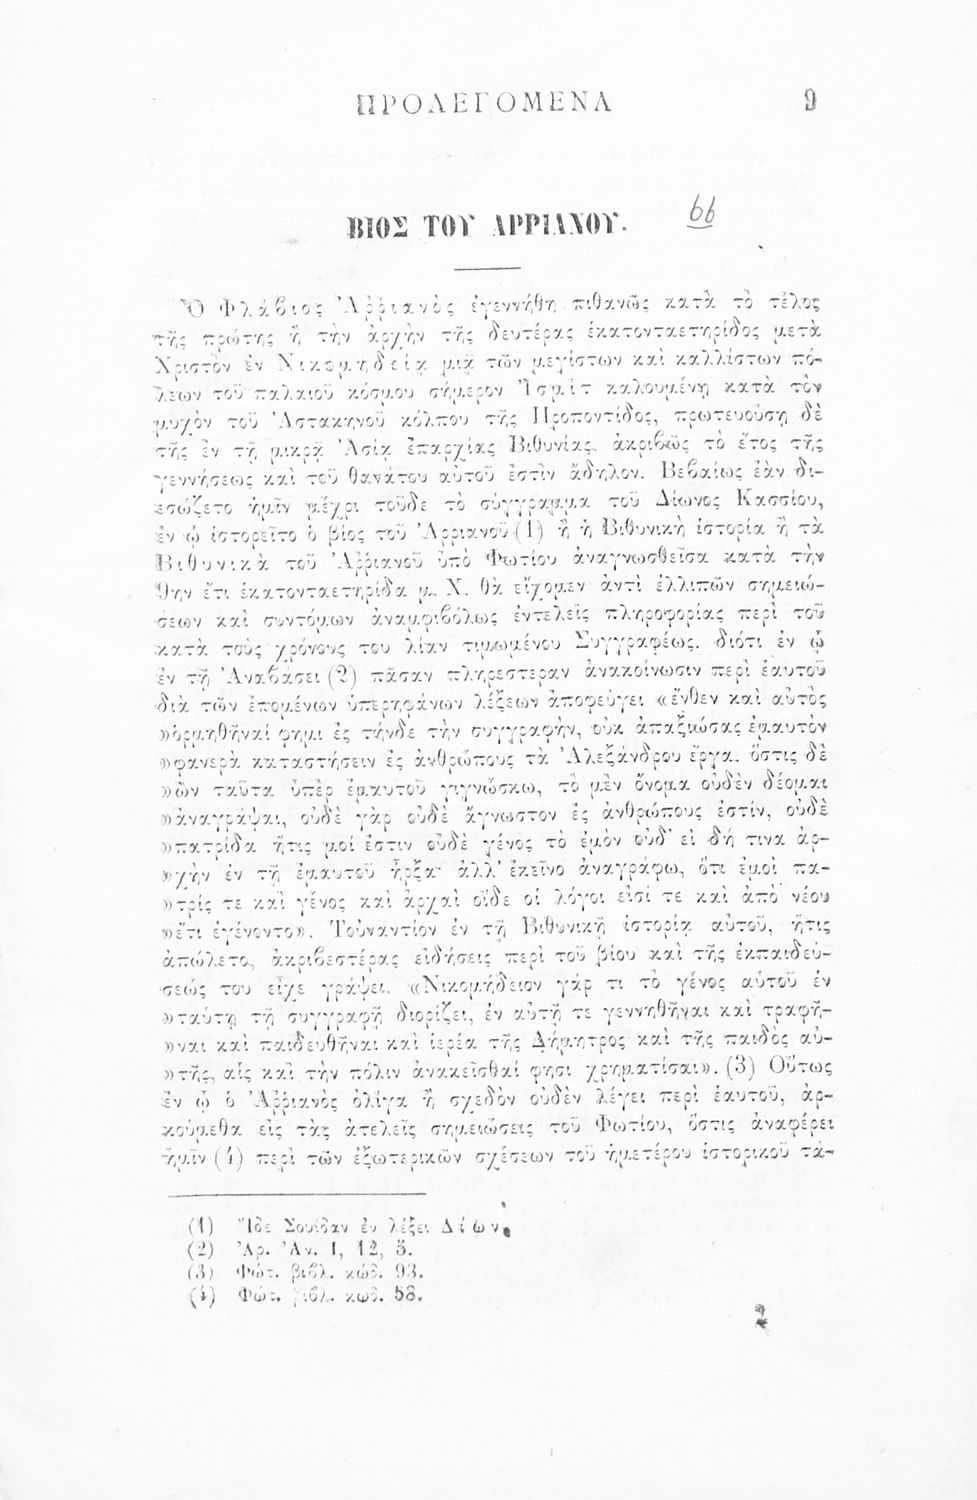 ΠΡΟΛΕΓΟΜΕΝΑ 9
ΒΙΟΣ ΤΟΥ ΑΡΡΙΑΝΟΥ. 66
Ὁ Φλάβιος Ἀῤῥιανὸς ἐγεννήθη πιθανῶς κατὰ τὸ τέλος
τῆς πρώτης ἢ τὴν ἀρχὴν τῆς δευτέρας ἑκατονταετηρίδος μετὰ
Χριστὸν ἐν Νικομηδείᾳ μιᾷ τῶν μεγίστων καὶ καλλίστων πό-
λεων τοῦ παλαιοῦ κόσμου σήμερον Ἰσμὶτ καλουμένῃ κατὰ τὸν
μυχὸν τοῦ Ἀστακηνοῦ κόλπου τῆς Προποντίδος, πρωτευούσῃ δὲ
τῆς ἐν τῇ μικρᾷ Ἀσίᾳ ἐπαρχίας Βιθυνίας. ἀκριβῶς τὸ ἔτος τῆς
γεννήσεως καὶ τοῦ θανάτου αὐτοῦ ἐστὶν ἄδηλον. Βεβαίως ἐὰν δι-
εσώζετο ἡμῖν μέχρι τοῦδε τὸ σύγγραμμα τοῦ Δίωνος Κασσίου,
ἐν ᾧ ἱστορεῖτο ὁ βίος τοῦ Ἀρριανοῦ (1) ἢ ἡ Βιθυνικὴ ἱστορία ἢ τὰ
Βιθυνικὰ τοῦ Ἀῤῥιανοῦ ὑπὸ Φωτίου ἀναγνωσθεῖσα κατὰ τὴν
9ην ἔτι ἑκατονταετηρίδα μ. Χ. θὰ εἴχομεν ἀντὶ ἐλλιπῶν σημειώ-
σεων καὶ συντόμων ἀναμφιβόλως ἐντελεῖς πληροφορίας περὶ τοῦ
κατὰ τοὺς χρόνους του λίαν τιμωμένου Συγγραφέως. διότι ἐν ᾧ
ἐν τῇ Ἀναβάσει (2) πᾶσαν πληρεστεραν ἀνακοίνωσιν περὶ ἑαυτοῦ
διὰ τῶν ἑπομένων ὑπερηφάνων λέξεων ἀποφεύγει «ἔνθεν καὶ αὐτὸς
»ὁρμηθῆναί φημι ἐς τήνδε τὴν συγγραφὴν, οὐκ ἀπαξιώσας ἐμαυτὸν
»φανερὰ καταστήσειν ἐς ἀνθρώπους τὰ Ἀλεξάνδρου ἔργα. ὅστις δὲ
»ὢν ταῦτα ὑπὲρ ἐμαυτοῦ γιγνώσκω, τὸ μὲν ὄνομα οὐδὲν δέομαι
»ἀναγράψαι, οὐδὲ γὰρ οὐδὲ ἄγνωστον ἐς ἀνθρώπους ἐστίν, οὐδὲ
»πατρίδα ἥτις μοί ἐστιν οὐδὲ γένος τὸ ἐμὸν οὐδ' εἰ δή τινα ἀρ-
»χὴν ἐν τῇ ἐμαυτοῦ ἦρξα· ἀλλ' ἐκεῖνο ἀναγράφω, ὅτι ἐμοὶ πα-
»τρίς τε καὶ γένος καὶ ἀρχαὶ οἵδε οἱ λόγοι εἰσί τε καὶ ἀπὸ νέου
»ἔτι ἐγένοντο». Τοὐναντίον ἐν τῇ Βιθυνικῇ ἱστορίᾳ αὐτοῦ, ἥτις
ἀπώλετο, ἀκριβεστέρας εἰδήσεις περὶ τοῦ βίου καὶ τῆς ἐκπαιδεύ-
σεώς του εἶχε γράψει. «Νικομήδειον γάρ τι τὸ γένος αὑτοῦ ἐν
»ταύτῃ τῇ συγγραφῇ διορίζει, ἐν αὐτῇ τε γεννηθῆναι καὶ τραφῆ-
»ναι καὶ παιδευθῆναι καὶ ἱερέα τῆς Δήμητρος καὶ τῆς παιδὸς αὐ-
»τῆς, αἷς καὶ τὴν πόλιν ἀνακεῖσθαί φησι χρηματίσαι». (3) Οὕτως
ἐν ᾧ ὁ Ἀῤῥιανὸς ὀλίγα ἢ σχεδὸν οὐδὲν λέγει περὶ ἑαυτοῦ, ἀρ-
κούμεθα εἰς τὰς ἀτελεῖς σημειώσεις τοῦ Φωτίου, ὅστις ἀναφέρει
ἡμῖν (4) περὶ τῶν ἐξωτερικῶν σχέσεων τοῦ ἡμετέρου ἱστορικοῦ τά-
(1) Ἴδε Σουίδαν ἐν λέξει Δίων.
(2) Ἀρ. Ἀν. 1, 12, 5.
(3) Φώτ. βιβλ. κώδ. 93.
(4) Φώτ. βιβλ. κωδ. 58.